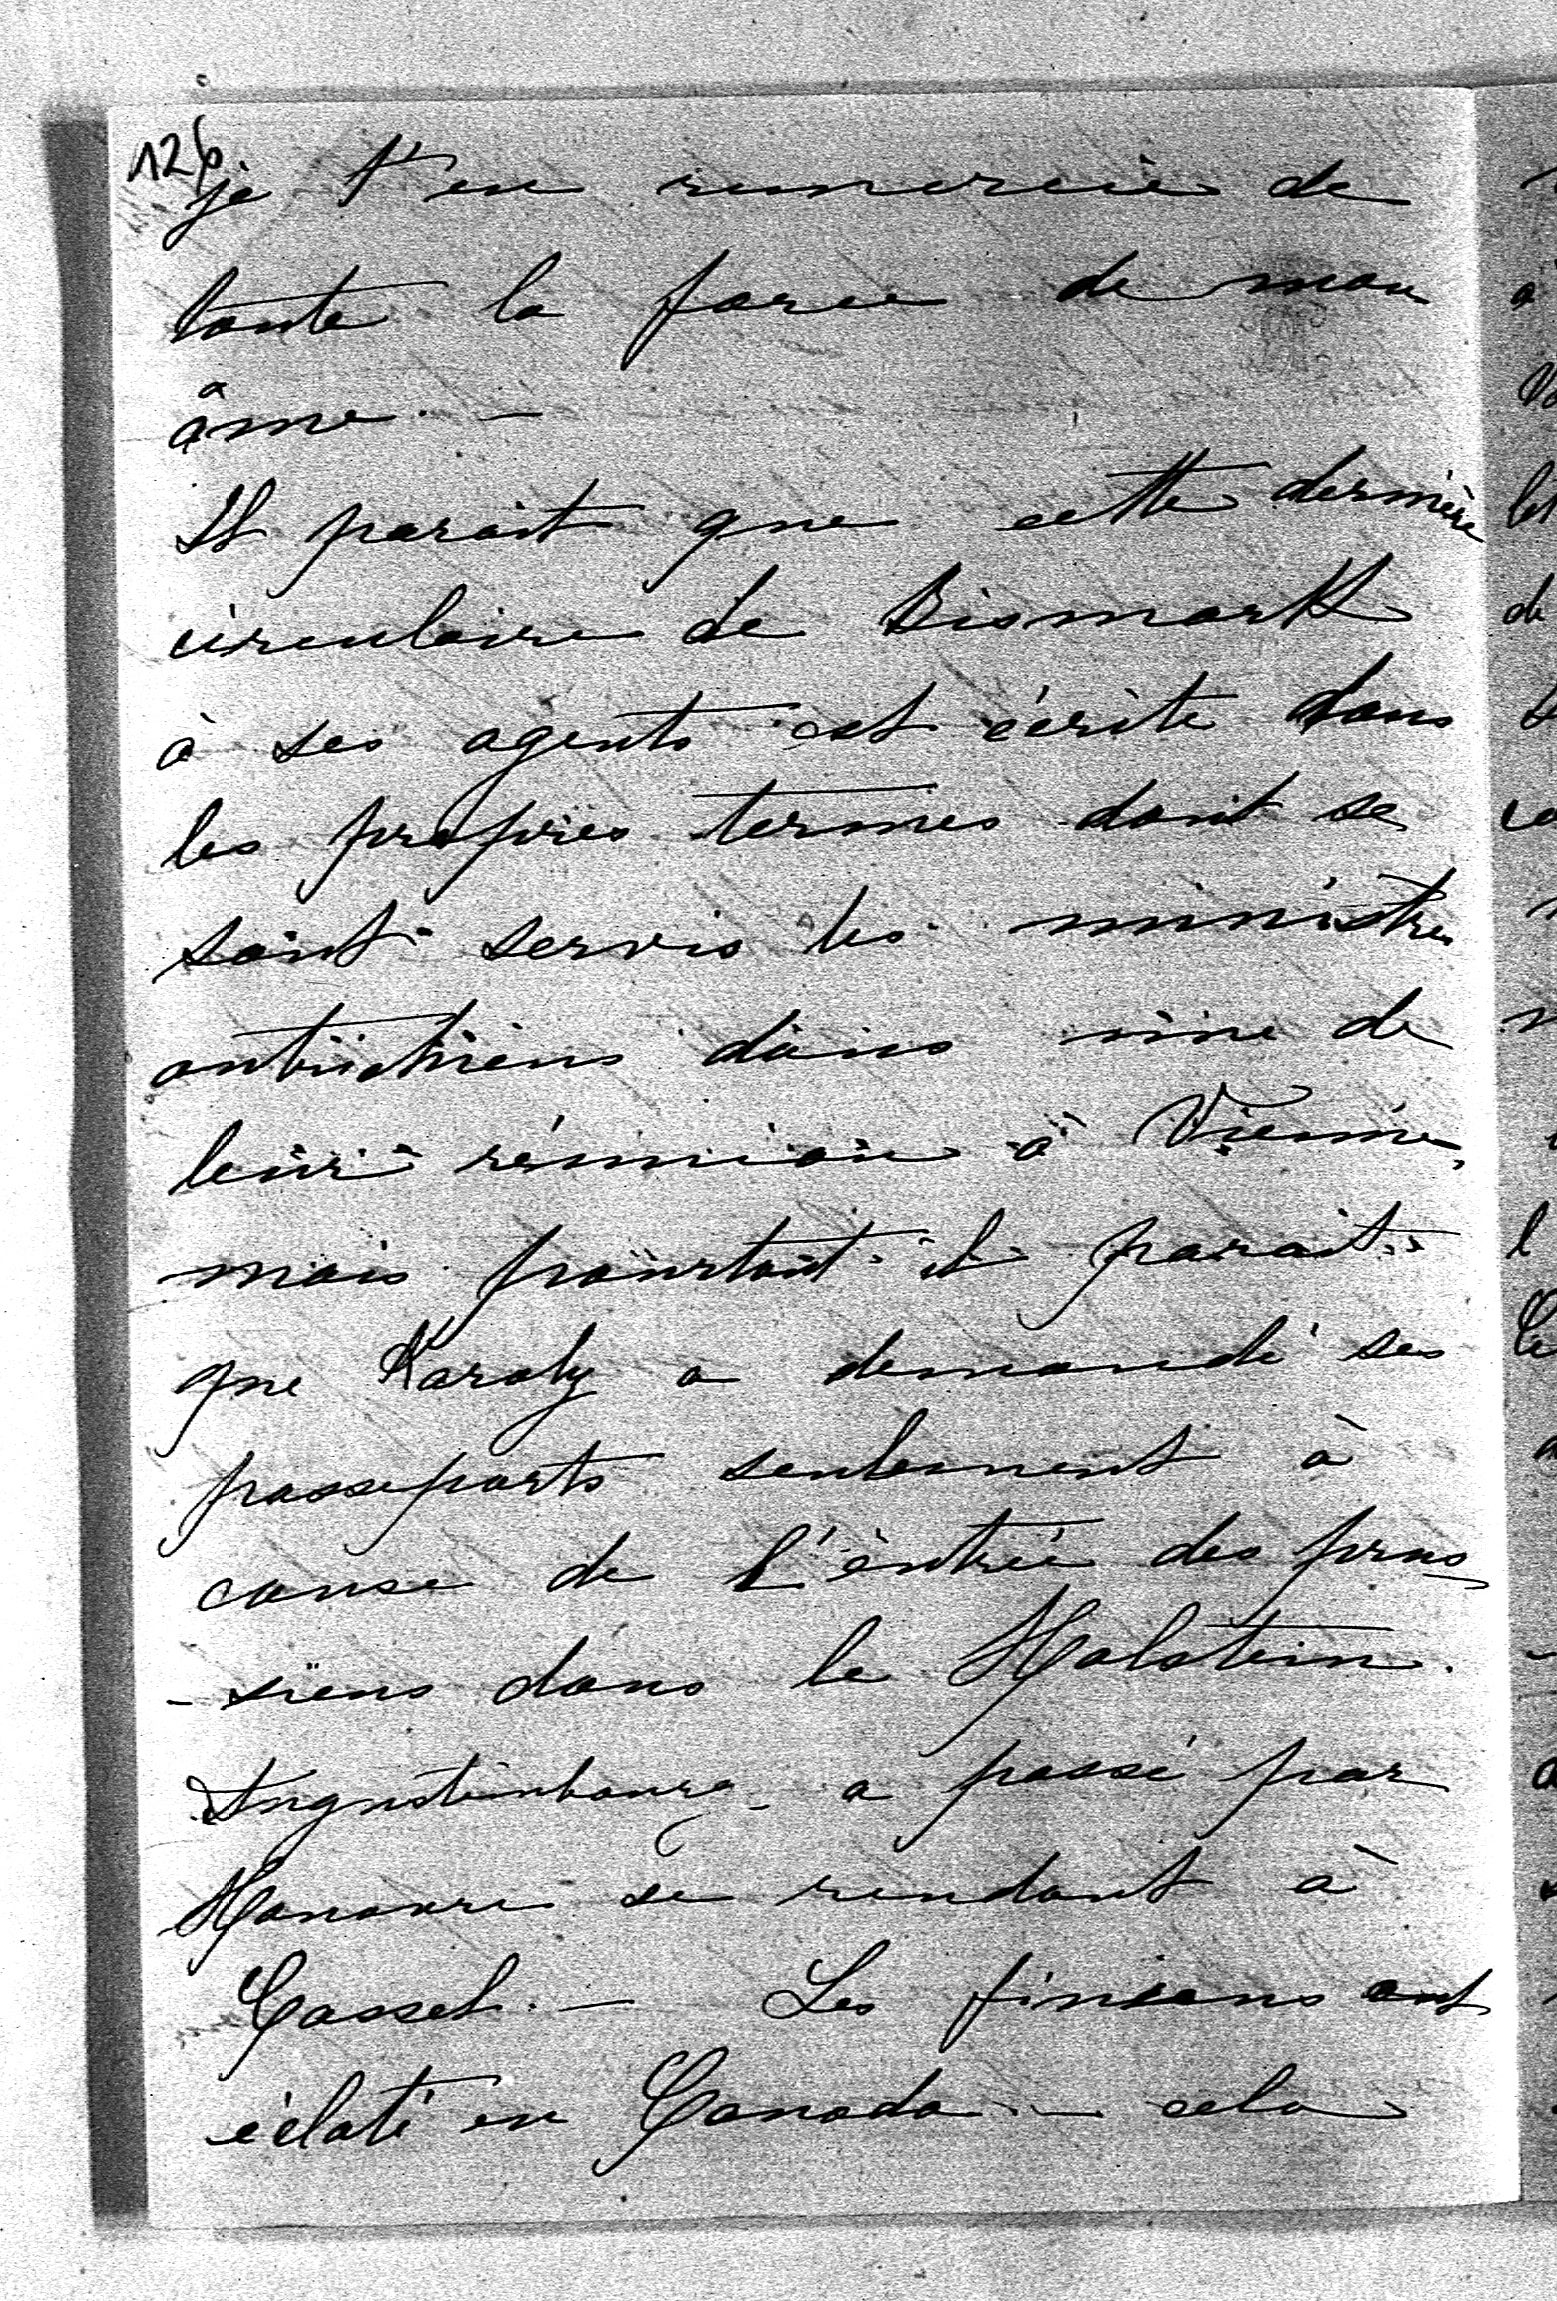 126.
je t'en remercie de
toute la force de mon
âme. —
Il parait que cette dernière
circulaire de Bismark
à ses agents est écrite dans
les propres termes dont se
sont servis les ministres
autrichiens dans une de
leur réunion à Vienne,
mais pourtant il parait
que Karoly a demandé ses
passeports seulement à
cause de l'entrée des prus
- siens dans le Holstein.
Augustenbourg a passé par
Hanovre se rendant à
Cassel. — Les finians ont
éclaté en Canada — cela